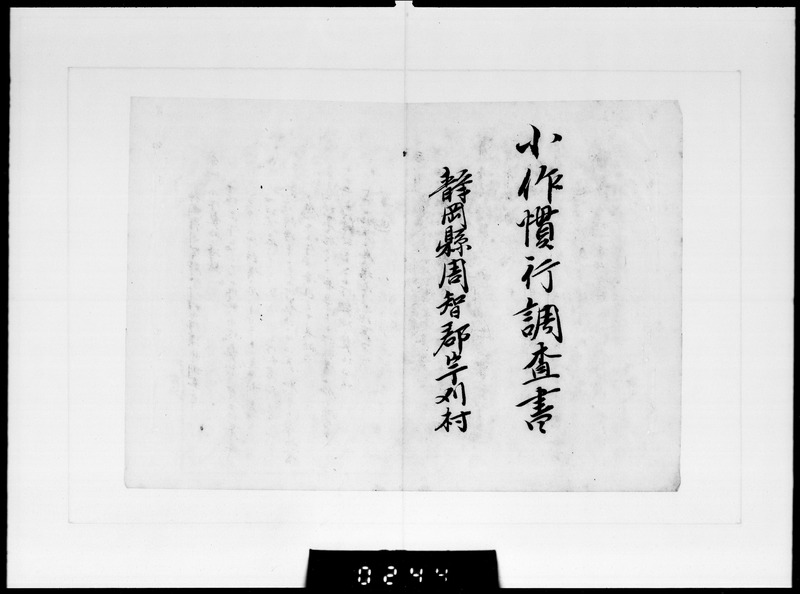 小作慣行調査書
静岡縣周智郡宇刈村
0244